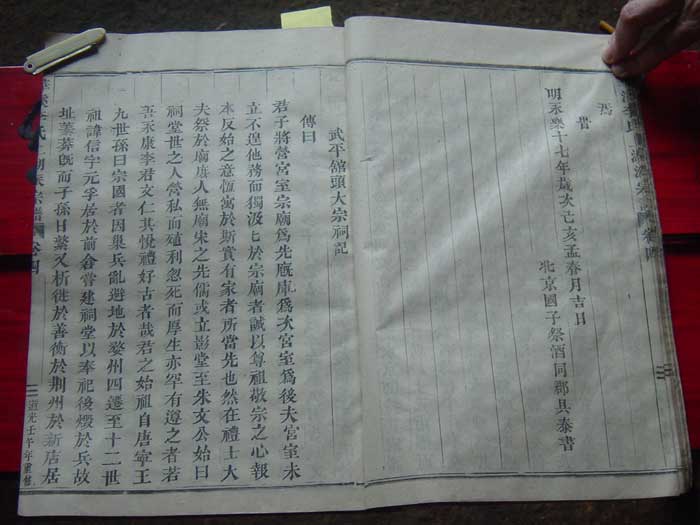 焉 昔
明永樂十七年歲次己亥孟春月吉日
北京國子祭酒同郡具泰書
武平舘頭大宗祠記
傳曰
君子將營宮室宗廟爲先厩庫爲次宮室爲後夫宮室未
立不遑他務而獨汲匕於宗廟者誠以尊祖敬宗之心報
本反始之意恆寓於斯實有家者所當先也然在禮士大
夫祭於廟庶人無廟宋之先儒或立影堂至朱文公始曰
祠堂世之人營私而殖利忽死而厚生亦罕有遵之者若
吾永康李君文仁其悅禮好古者哉君之始祖自唐寧王
九世孫曰宗國者因巢兵亂避地於婺州四遷至十二世
祖諱信字元孚居於前倉嘗建祠堂以奉祀後燬於兵故
址蓁莽旣而子孫日蕃又析徙於善衡於荆州於新店居
道光壬午年重修
宗譜 卷四
卷四